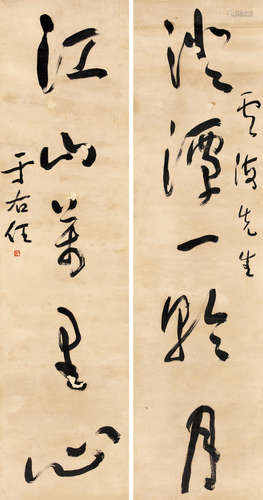 澄潭一輪月
雲海先生
江山萬里心
于右任